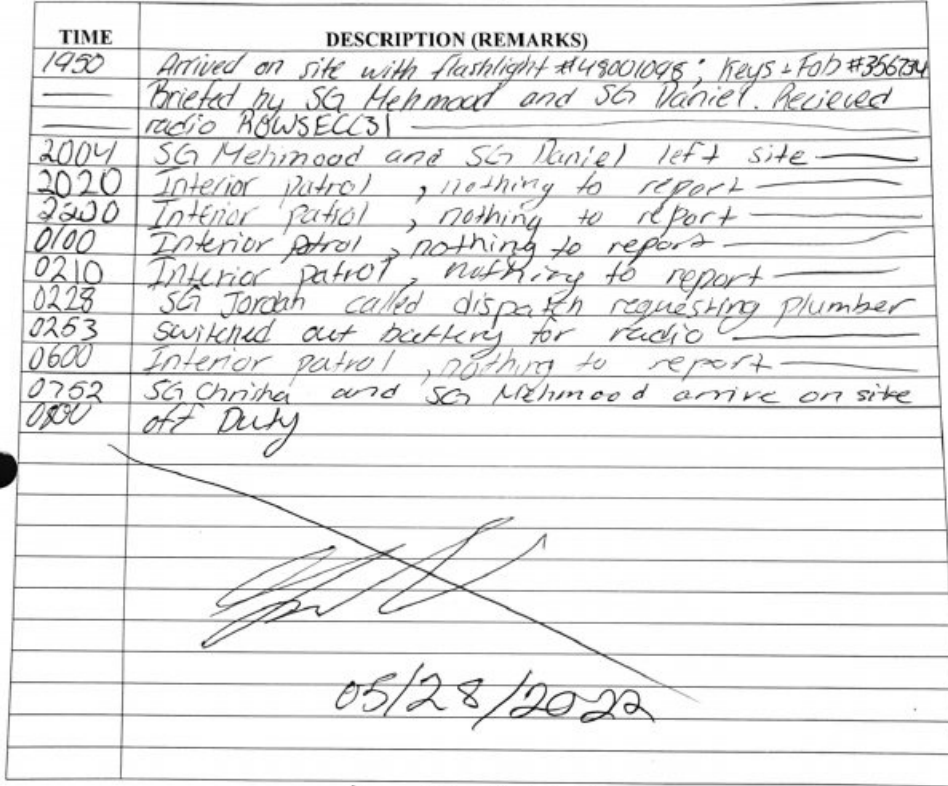 TIME DESCRIPTION (REMARKS)
1950 Arrived on site with flashlight #48001098; Keys + Fob #356734
Briefed by SG Mehmood and SG Daniel. Recieved
radio RBWSECC31
2004 SG Mehmood and SG Daniel left site
2020 Interior patrol, nothing to report
2200 Interior patrol, nothing to report
0100 Interior patrol, nothing to report
0210 Interior patrol, nothing to report
0228 SG Jordan called dispatch requesting plumber
0253 switched out battery for radio
0600 Interior patrol, nothing to report
0752 SG Chrisha and SG Mehmood arrive on site
0800 off Duty
05/28/2022